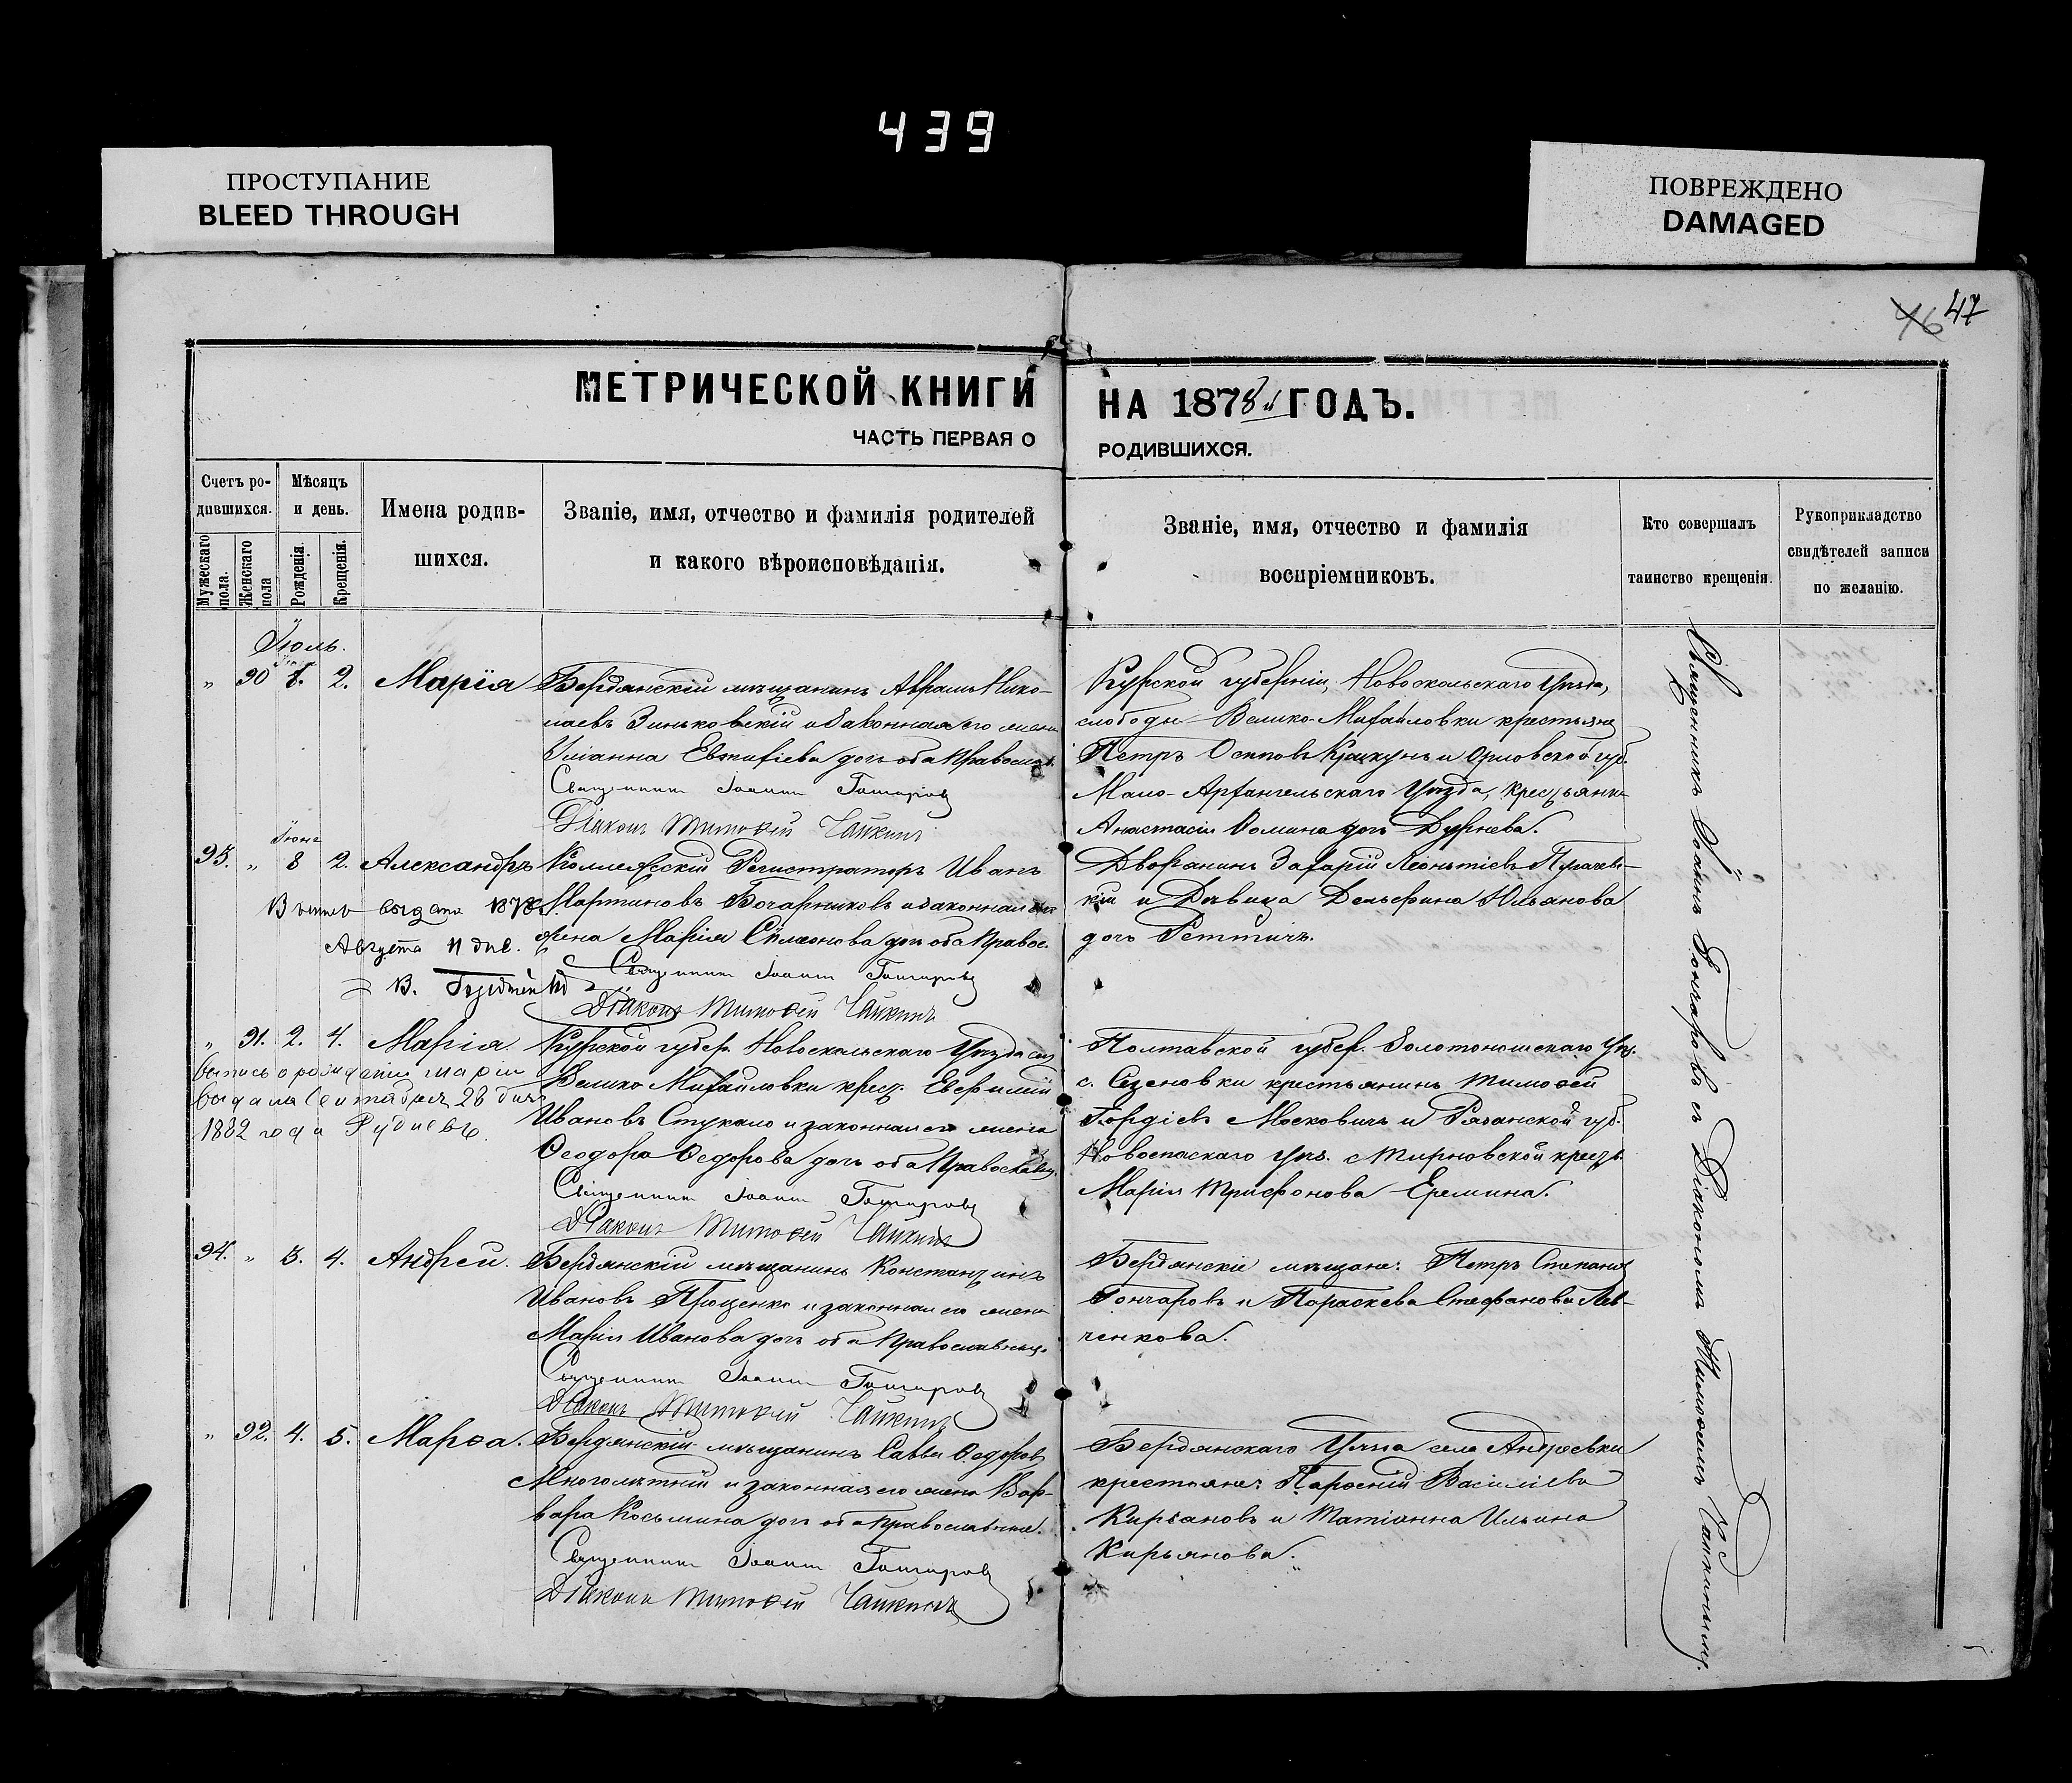 439
ПРОСТУПАНИЕ
BLEED THROUGH
ПОВРЕЖДЕНО
DAMAGED
46 47
МЕТРИЧЕСКОЙ КНИГИ НА 1878й ГОДЪ.
ЧАСТЬ ПЕРВАЯ О РОДИВШИХСЯ.
Счетъ ро-
дившихся.
Мужескаго пола.
Женскаго пола
Мѣсяцъ
и день.
Рожденія.
Крещенія.
Имена родив-
шихся.
Званіе, имя, отчество и фамилія родителей
и какого вѣроисповѣданія.
Званіе, имя, отчество и фамилія
воспріемниковъ.
Кто совершалъ
таинство крещенія.
Рукоприкладство
свидѣтелей записи
по желанію.
Іюль.
" 90 1. 2. Марія
Бердянскій мѣщанинъ Авраамъ Нико-
лаевъ Зиньковскій и законная его жена
Уліанна Евѳиміева дочь оба Правосл.
Священник Іоанн Гончаровъ
Діаконъ Тимоѳей Чайкинъ
Курской губерніи, Новоскольскаго Уѣзда,
слободы Велико-Михайловки крестьянъ
Петръ Осиповъ и Орловской губ.
Мало-Архангельскаго Уѣзда, крестьянка
Анастасія Ѳомина дочь Дурнева.
Іюня
93. " 8 2. Александръ
Коллежскій Регистраторъ Иванъ
Мартиновъ Бочарниковъ и законная его
жена Марія Симеонова дочь оба Правос.
Священник Іоанн Гончаровъ
Діаконъ Тимоѳей Чайкинъ
выдана 1878
Августа 11 дня.
Дворянинъ Захарій Леонтіевъ
кій и Дѣвица Дельфина Юльянова
дочь Реттичъ.
" 91. 2. 4. Марія.
выпись о рожденіи Маріи
выдана Сентября 28 дня
1882 года Рудневъ.
Курской губер. Новоскольскаго Уѣзда сл.
Велико Михайловки крест. Евфимій
Ивановъ Стукало и законная его жена
Ѳеодора Ѳедорова дочь оба Православн.
Священник Іоанн Гончаровъ
Діаконъ Тимоѳей Чайкинъ
Полтавской губер. Золотоношскаго Уѣз.
с. крестьянинъ Тимоѳей
Гордіевъ Московичъ и Рязанской губ.
Новоспаскаго уѣз. крест.
Марія Трифонова Еремина.
94. " 3. 4. Андрей.
Бердянскій мѣщанинъ Константинъ
Ивановъ Проценко и законная его жена
Марія Иванова дочь оба Православные.
Священник Іоанн Гончаровъ
Діаконъ Тимоѳей Чайкинъ
Бердянскіе мѣщане: Петръ Степановъ
Гончаровъ и Параскева Стефанова Лев-
ченкова.
" 92. 4. 5. Марѳа.
Бердянскій мѣщанинъ Савва Ѳедоровъ
Многолѣтній и законная его жена Вар-
вара Косьмина дочь оба Православные.
Священник Іоанн Гончаровъ
Діаконъ Тимоѳей Чайкинъ
Бердянскаго Уѣзда села Андреевки
крестьяне: Парѳеній Василіевъ
Кирьановъ и Татіанна Ильина
Кирьянова.
Священникъ Іоаннъ Гончаровъ съ Діакономъ Тимоѳеемъ Чайкинымъ.